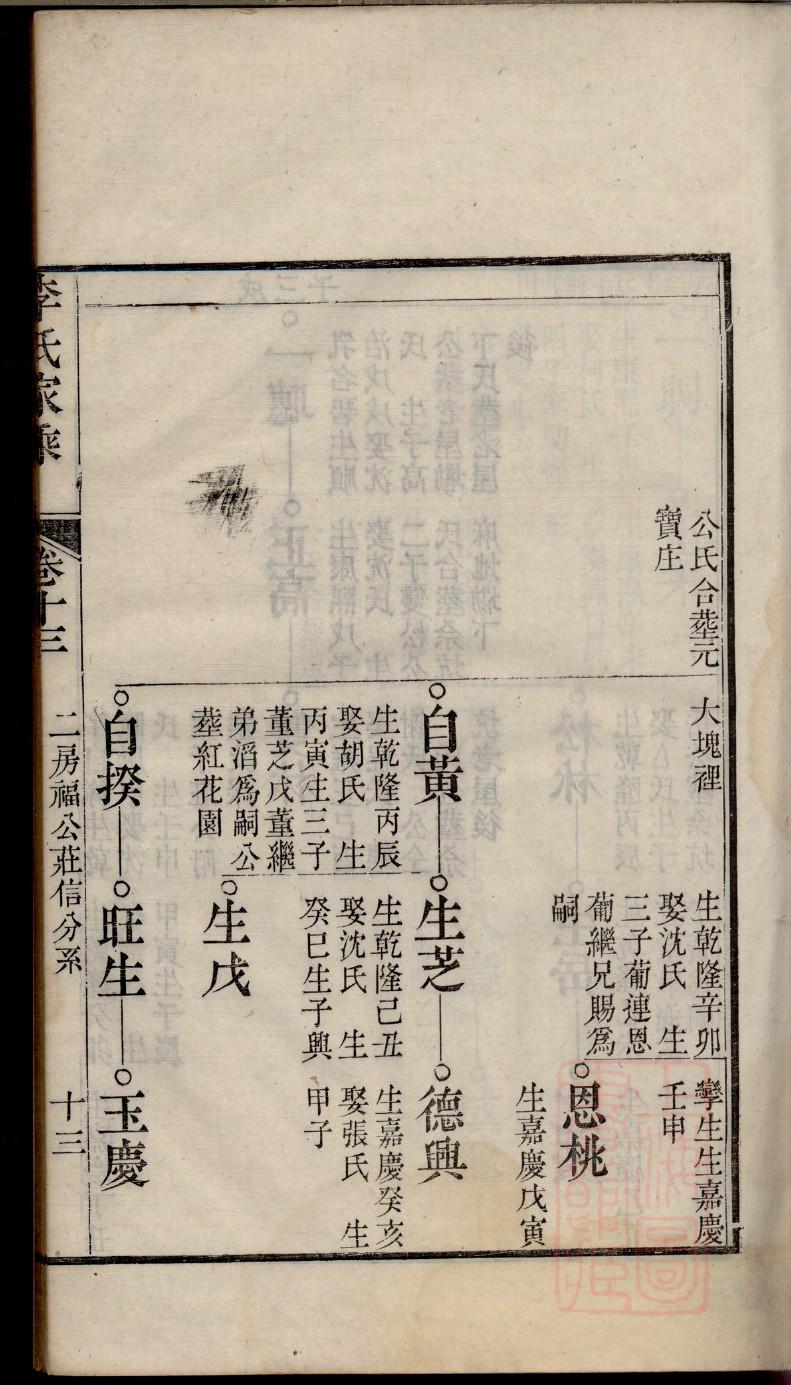 公氏合塟元
寶庄
大塊裡
生乾隆辛卯
娶沈氏　生
三子葡連恩
葡繼兄賜爲
嗣
孿生生嘉慶
壬申
恩桃
生嘉慶戊寅
自黃
生乾隆丙辰
娶胡氏　生
丙寅生三子
董芝戊董繼
弟滔爲嗣公
塟紅花園
生芝
生乾隆己丑
娶沈氏　生
癸巳生子興
德興
生嘉慶癸亥
娶張氏　生
甲子
生戊
自揆
旺生
玉慶
李氏家乘
卷十三
二房福公莊信分系
十三